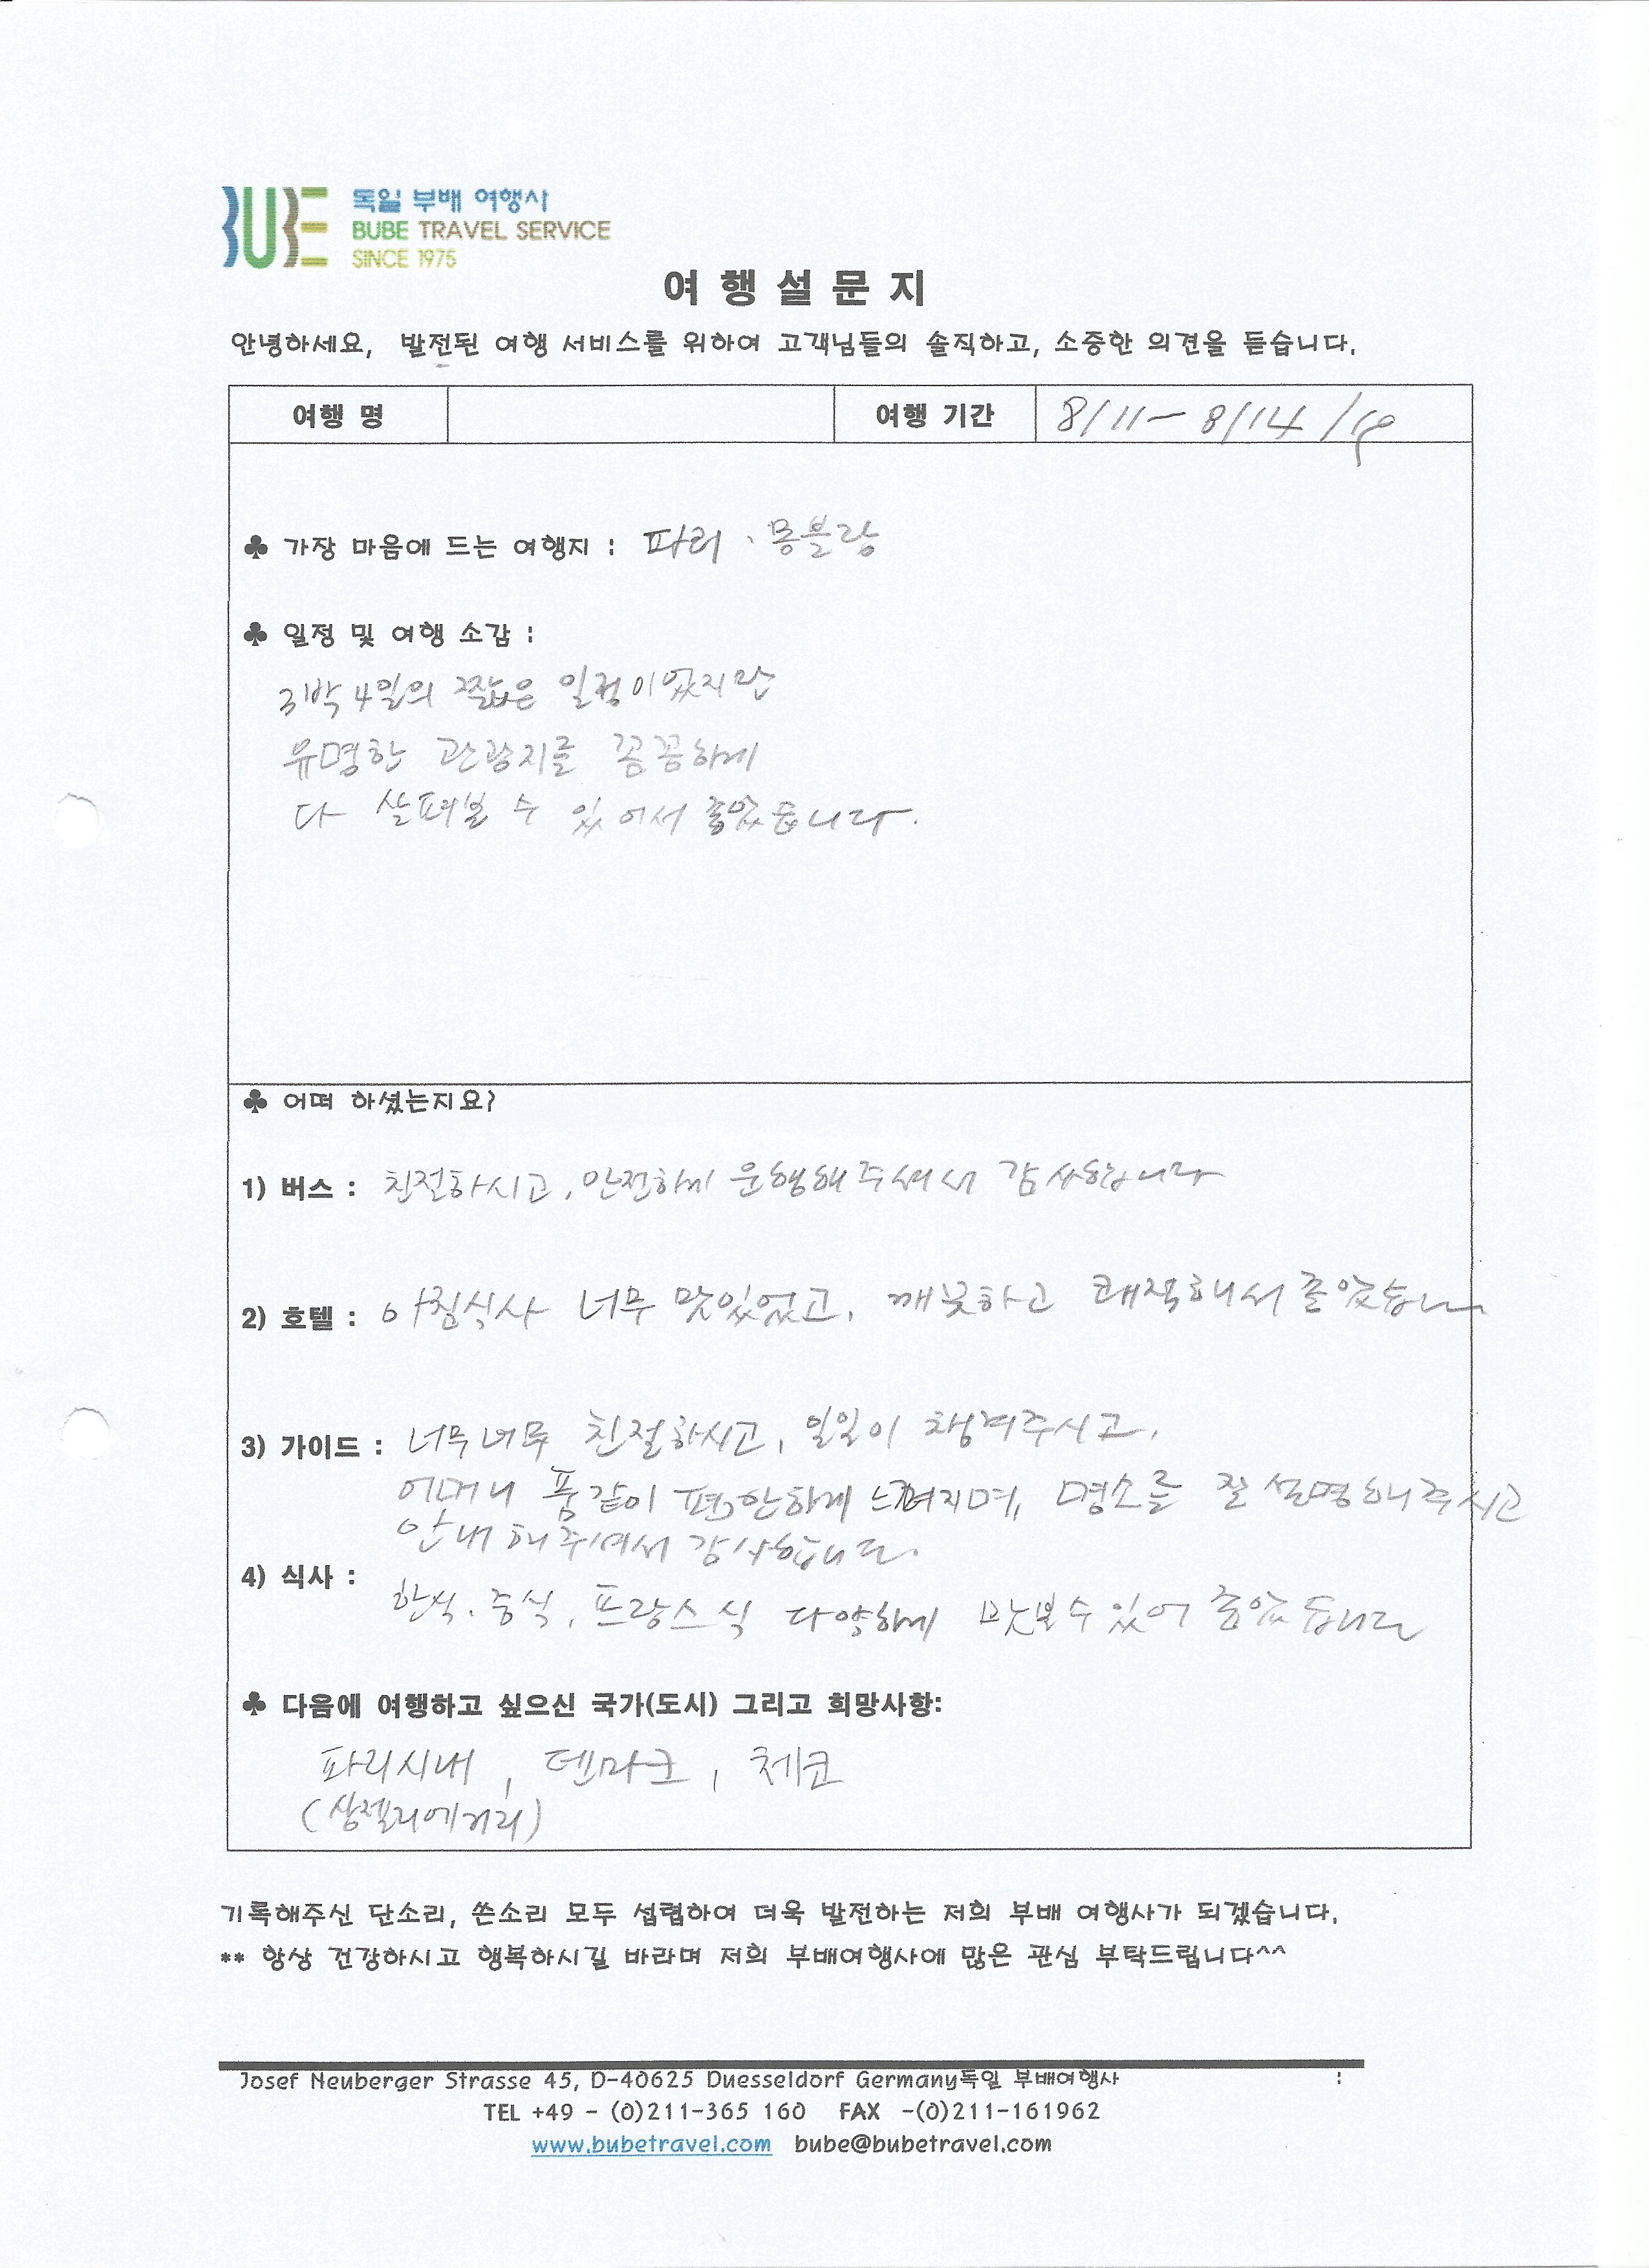 BUBE
독일 부배 여행사
BUBE TRAVEL SERVICE
SINCE 1975
여 행 설 문 지
안녕하세요, 발전된 여행 서비스를 위하여 고객님들의 솔직하고, 소중한 의견을 듣습니다.
여행 명 여행 기간 8/11 - 8/14 /19
♣ 가장 마음에 드는 여행지 : 파리 · 몽블랑
♣ 일정 및 여행 소감 :
3박 4일의 짧은 일정이었지만
유명한 관광지를 꼼꼼하게
다 살펴볼 수 있어서 좋았습니다.
♣ 어떠 하셨는지요?
1) 버스 : 친절하시고, 안전하게 운행해주셔서 감사합니다
2) 호텔 : 아침식사 너무 맛있었고, 깨끗하고 쾌적해서 좋았습니다
3) 가이드 : 너무너무 친절하시고, 일일이 챙겨주시고,
어머니 품같이 편안하게 느껴지며, 명소를 잘 설명해주시고
안내해주셔서 감사합니다.
4) 식사 :
한식. 중식, 프랑스식 다양하게 맛볼수있어 좋았습니다
♣ 다음에 여행하고 싶으신 국가(도시) 그리고 희망사항:
파리시내 , 덴마크 , 체코
(샹젤리에거리)
기록해주신 단소리, 쓴소리 모두 섭렵하여 더욱 발전하는 저희 부배 여행사가 되겠습니다.
** 항상 건강하시고 행복하시길 바라며 저희 부배여행사에 많은 관심 부탁드립니다^^
Josef Neuberger Strasse 45, D-40625 Duesseldorf Germany독일 부배여행사 :
TEL +49 - (0)211-365 160 FAX -(0)211-161962
www.bubetravel.com bube@bubetravel.com